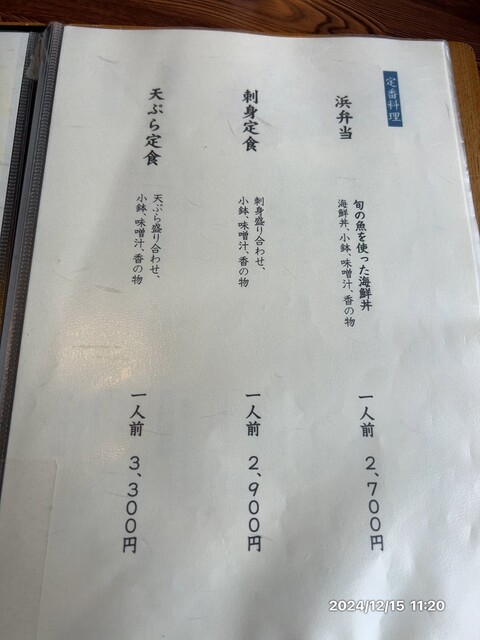 定番料理
浜弁当
旬の魚を使った海鮮丼
海鮮丼、小鉢、味噌汁、香の物
一人前 2,700円
刺身定食
刺身盛り合わせ、
小鉢、味噌汁、香の物
一人前 2,900円
天ぷら定食
天ぷら盛り合わせ、
小鉢、味噌汁、香の物
一人前 3,300円
2024/12/15 11:20